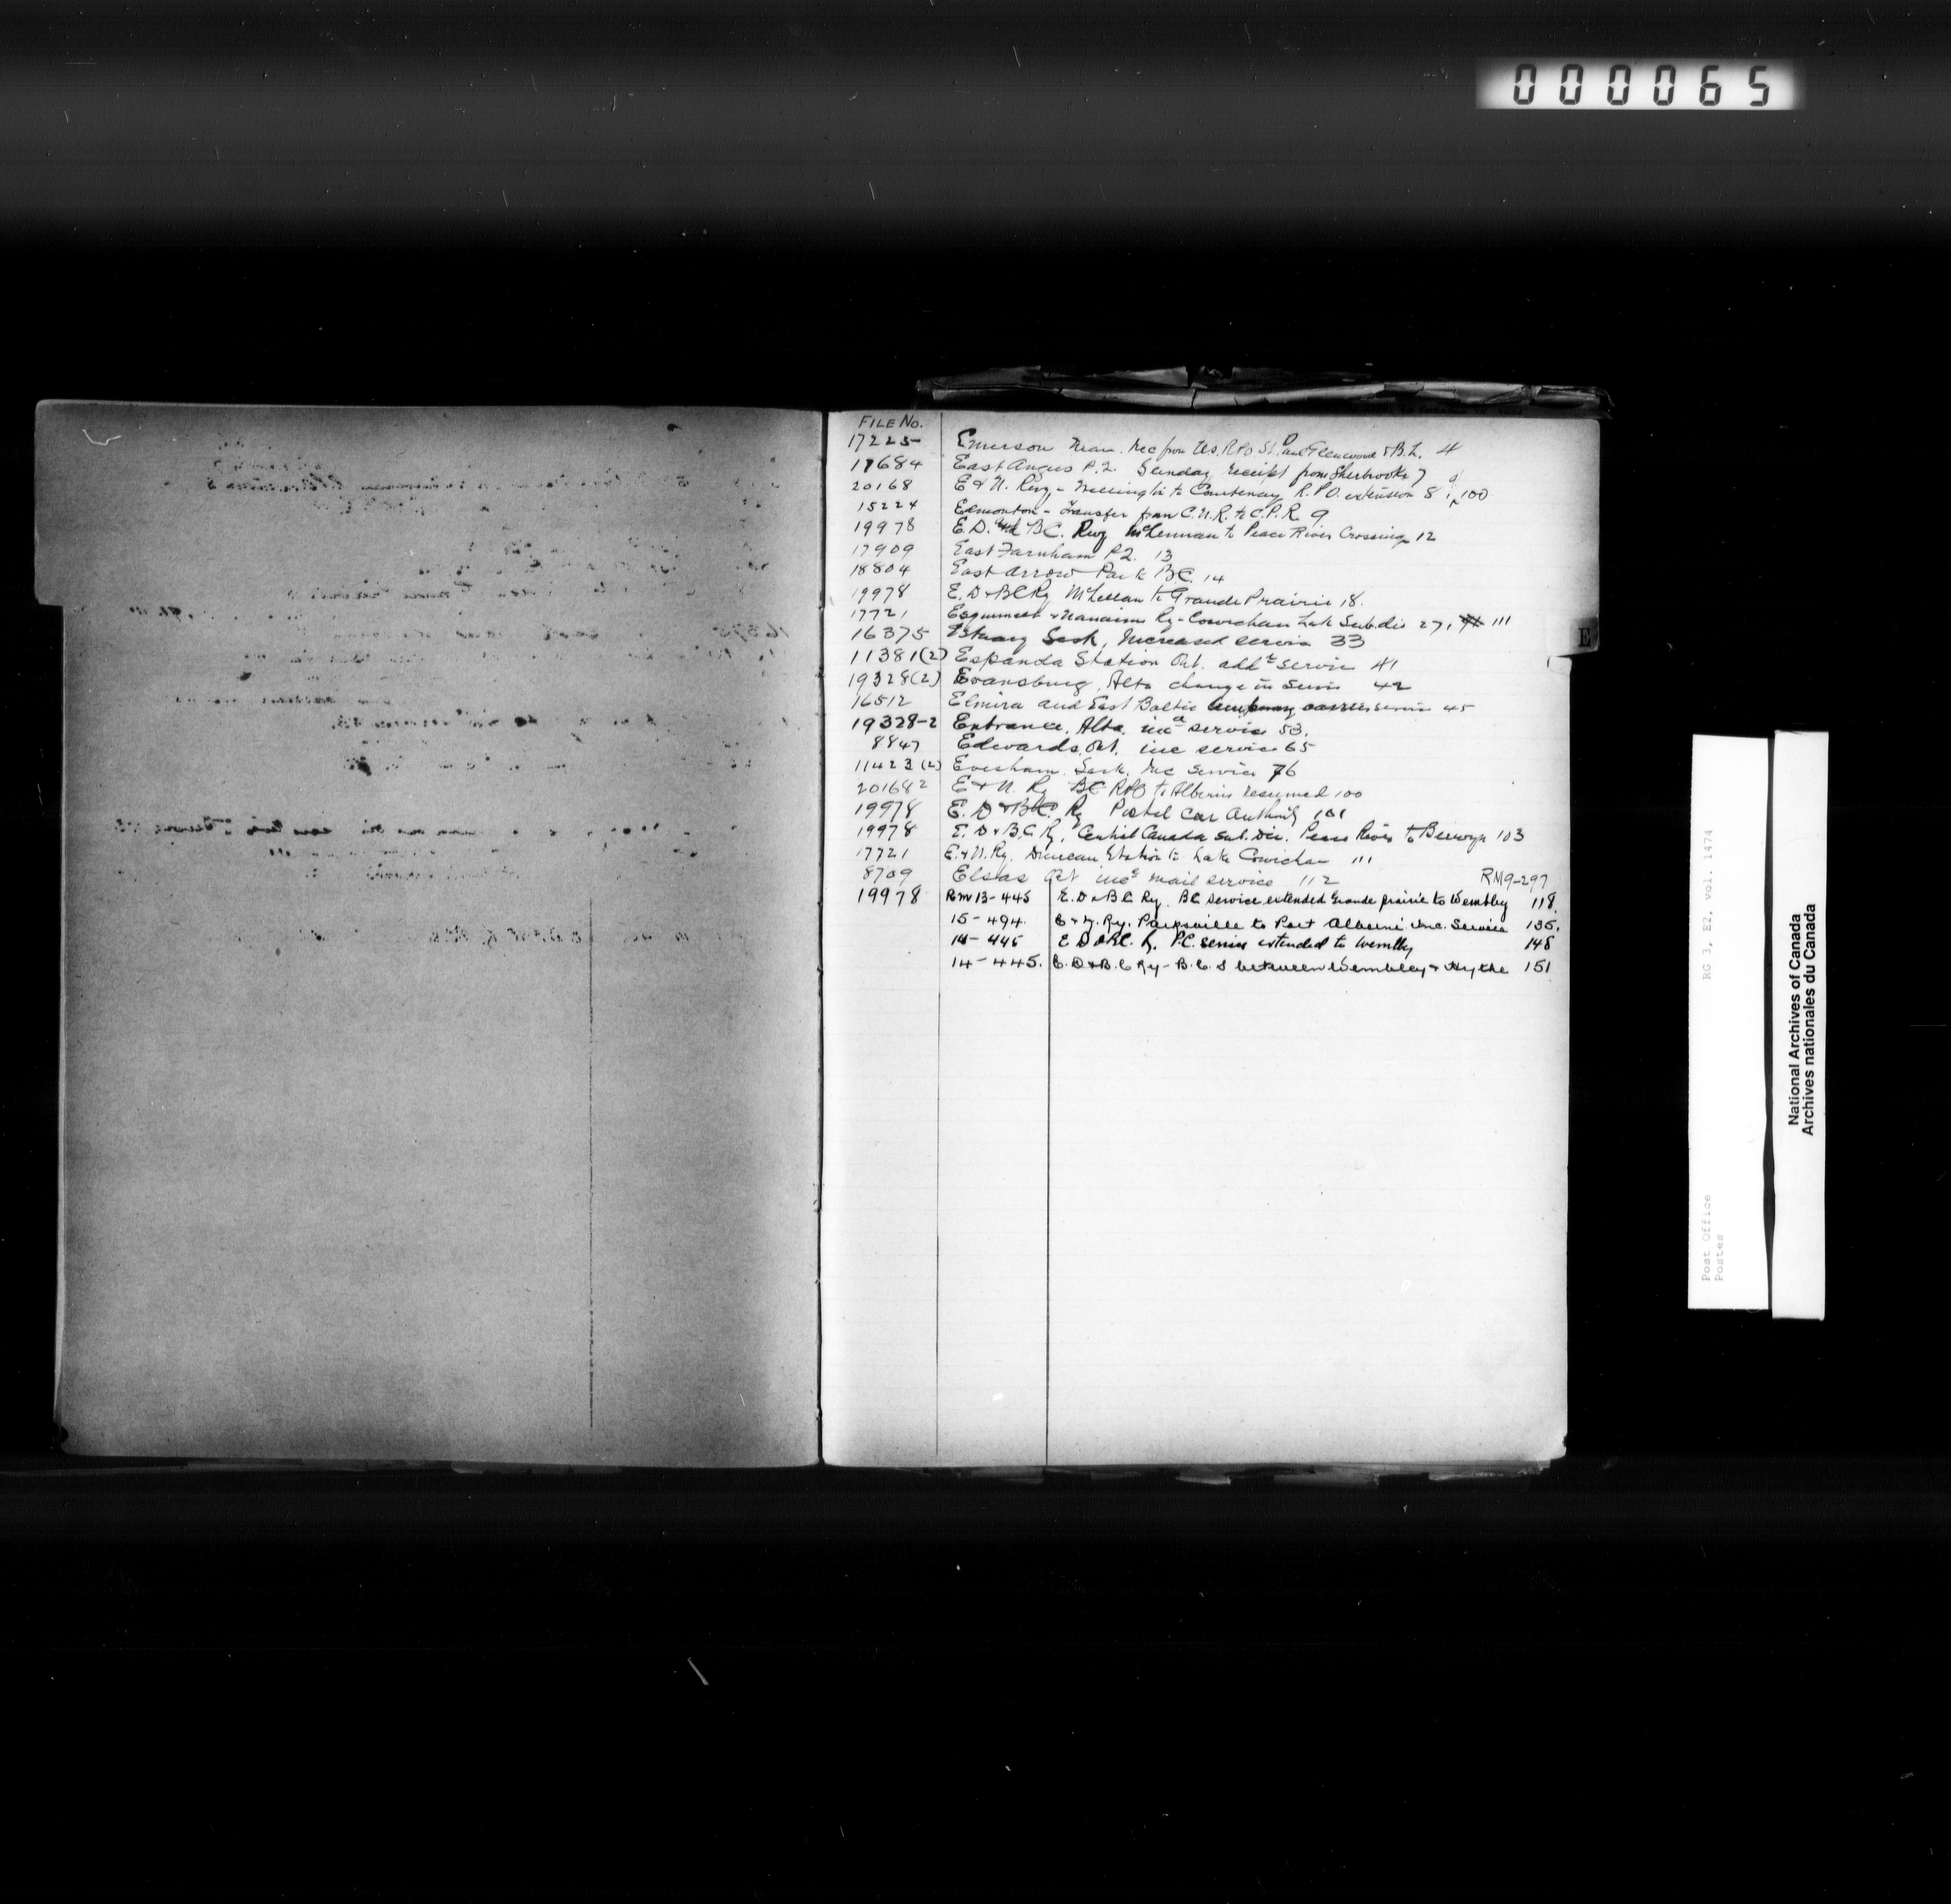 000065
FILE No.
17225 Emerson Man. Rec from U.S. RPO St. Paul Glenwood & B.L. 4
17684 East Angus P.Q. Sunday receipt from Sherbrooke 7
20168 E & N. Rwy - Wellington to Courtenay R.P.O. extension 8, 100
15224 Edmonton - transfer from C.N.R. to C.P.R. 9
19978 E.D. and BC. Rwy McLennan to Peace River Crossing 12
17909 East Farnham P.Q. 13
18804 East Arrow Park B.C. 14
19978 E. D & BC Ry McLellan to Grande Prairie 18.
17721 Esquimalt & Nanaimo Ry - Cowichan Lake Sub. div 27, 111
16375 Estuary Sask, Increased service 33
11381(2) Espanola Station Ont. addt service 41
19328(2) Evansburg, Alta change in service 42
16512 Elmira and East Baltic temporary service 45
19328-2 Entrance, Alta. incd service 53.
8847 Edwards, Ont. inc service 65
11423(2) Evesham Sask. Inc Service 76
20168 2 E & N. Ry BC RPO to Alberni resumed 100
19978 E. D & B.C. Ry Postal Car Authority 101
19978 E. D & B.C Ry, Central Canada Sub. Div. Peace River to Berwyn 103
17721 E. & N. Ry. Duncan Station to Lake Cowichan 111
8709 Elsas Ont incd mail service 112 RM9-297
19978 RM 13-445 E. D & B C Ry. BC Service extended Grande prairie to Wembley 118
15-494. E & N. Ry. Parksville to Port Alberni Inc. Service 135.
14-445 E D & BC. Ry. BC. service extended to Wembley 148
14-445. E. D & B. C Ry - B. C. S between Wembley & Hythe 151
E
RG 3, E2, vol. 1474
Post Office
Postes
National Archives of Canada
Archives nationales du Canada